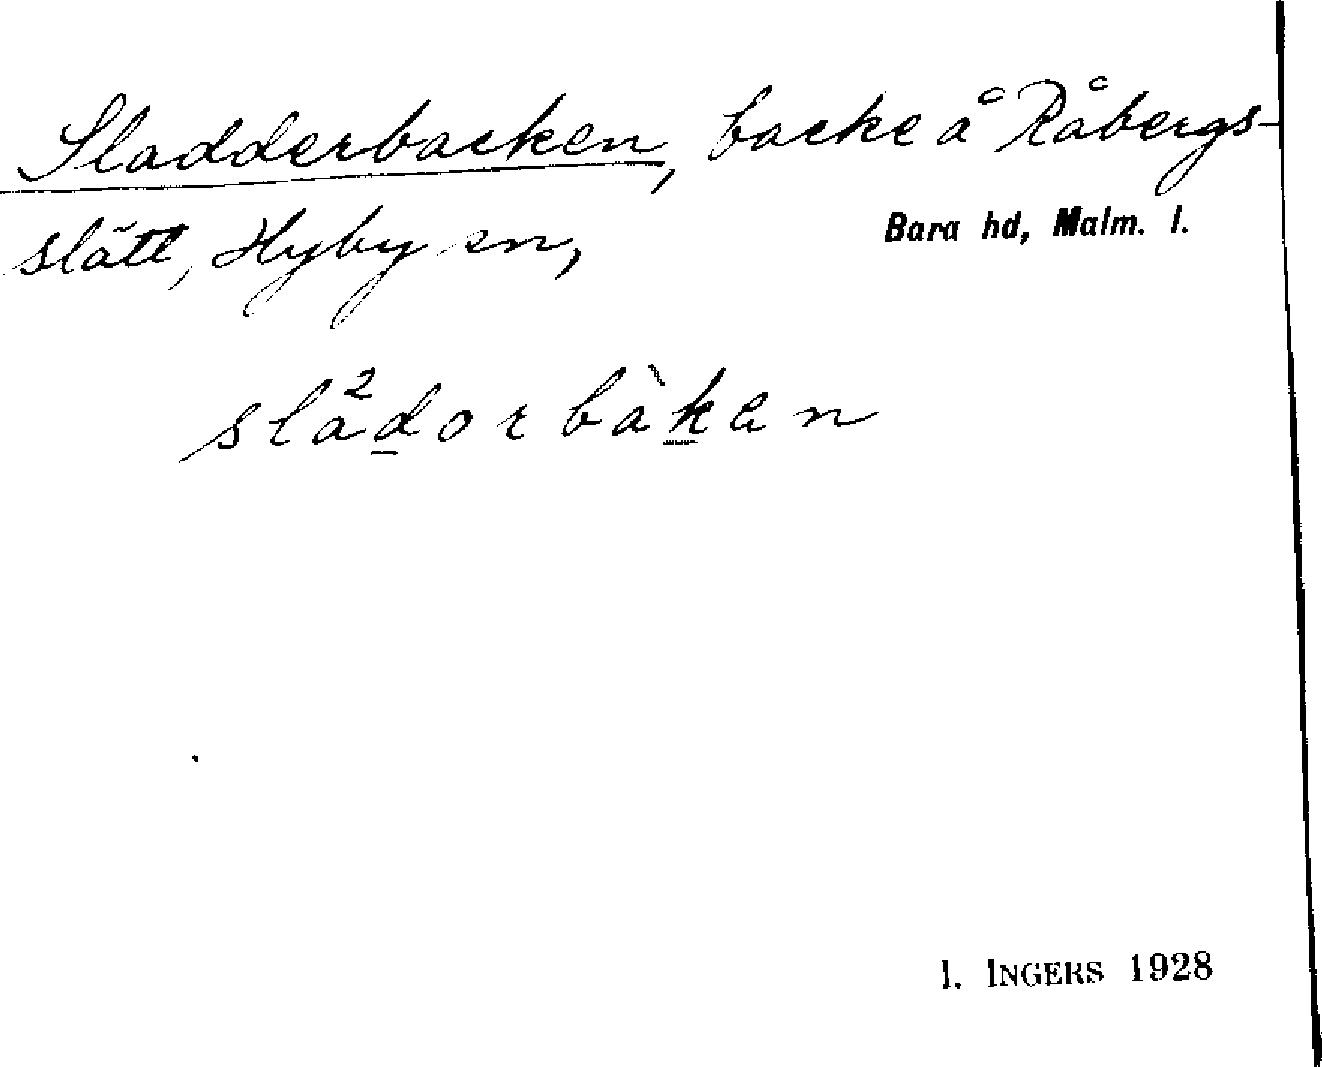 Sladderbacken, backe å Råbergs-
slätt, Hyby sn,
Bara hd, Malm. l.
slà²dorbàkan
I. INGERS 1928